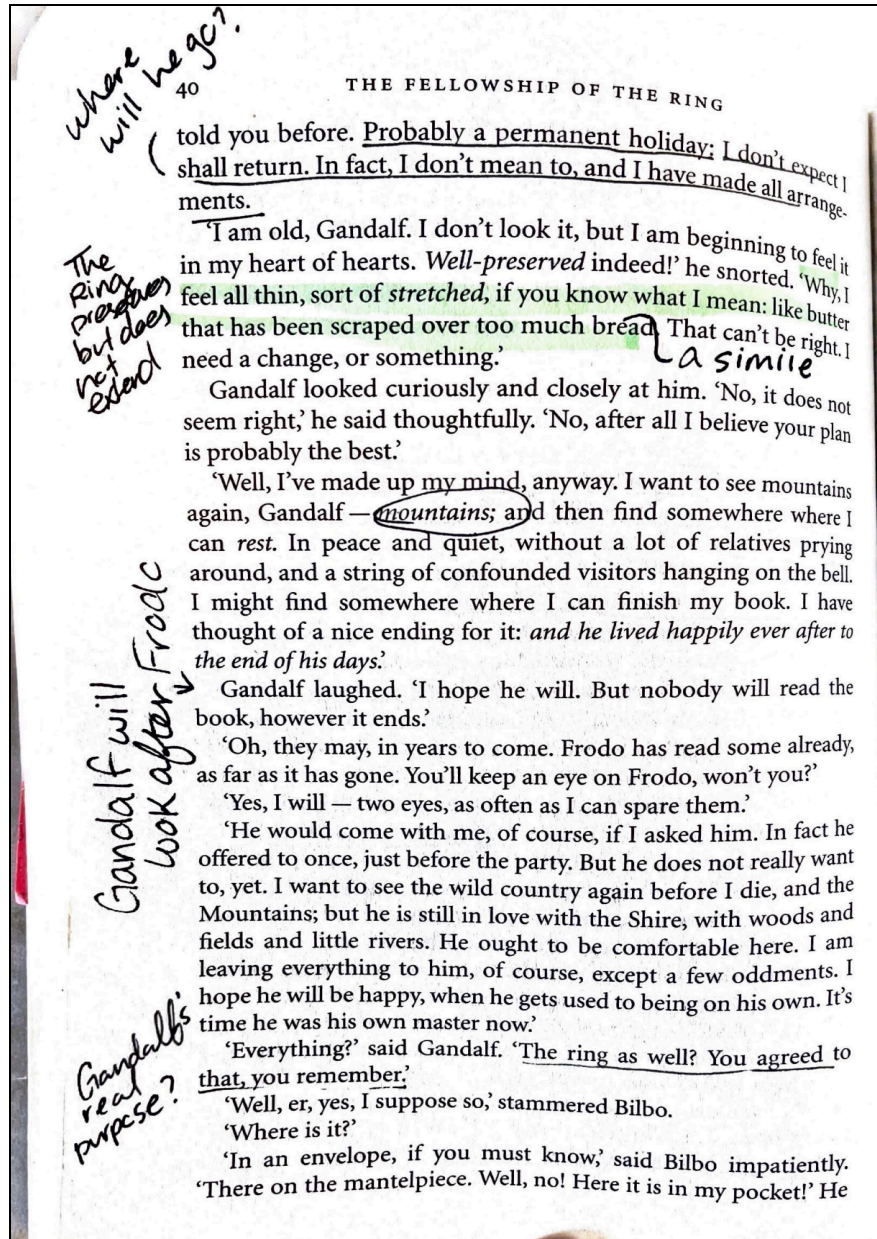 where
will he go?
40
THE FELLOWSHIP OF THE RING
told you before. Probably a permanent holiday: I don't expect I
shall return. In fact, I don't mean to, and I have made all arrange-
ments.
'I am old, Gandalf. I don't look it, but I am beginning to feel it
in my heart of hearts. Well-preserved indeed!' he snorted. 'Why, I
feel all thin, sort of stretched, if you know what I mean: like butter
that has been scraped over too much bread. That can't be right. I
need a change, or something.'
The
Ring
preserves
but does
not
extend
a simile
Gandalf looked curiously and closely at him. 'No, it does not
seem right,' he said thoughtfully. 'No, after all I believe your plan
is probably the best.'
'Well, I've made up my mind, anyway. I want to see mountains
again, Gandalf — mountains; and then find somewhere where I
can rest. In peace and quiet, without a lot of relatives prying
around, and a string of confounded visitors hanging on the bell.
I might find somewhere where I can finish my book. I have
thought of a nice ending for it: and he lived happily ever after to
the end of his days.'
Gandalf will
look after Frodo
Gandalf laughed. 'I hope he will. But nobody will read the
book, however it ends.'
'Oh, they may, in years to come. Frodo has read some already,
as far as it has gone. You'll keep an eye on Frodo, won't you?'
'Yes, I will — two eyes, as often as I can spare them.'
'He would come with me, of course, if I asked him. In fact he
offered to once, just before the party. But he does not really want
to, yet. I want to see the wild country again before I die, and the
Mountains; but he is still in love with the Shire, with woods and
fields and little rivers. He ought to be comfortable here. I am
leaving everything to him, of course, except a few oddments. I
hope he will be happy, when he gets used to being on his own. It's
time he was his own master now.'
Gandalf's
real
purpose?
'Everything?' said Gandalf. 'The ring as well? You agreed to
that, you remember.'
'Well, er, yes, I suppose so,' stammered Bilbo.
'Where is it?'
'In an envelope, if you must know,' said Bilbo impatiently.
'There on the mantelpiece. Well, no! Here it is in my pocket!' He